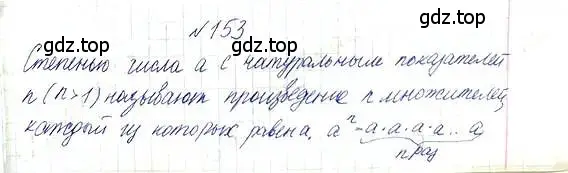 gdz.top gdz.top
№153
Степенью числа a с натуральным показателей
n (n>1) называют произведение n множителей,
каждый из которых равен a. aⁿ = a·a·a·a...a
n раз
gdz.top gdz.top